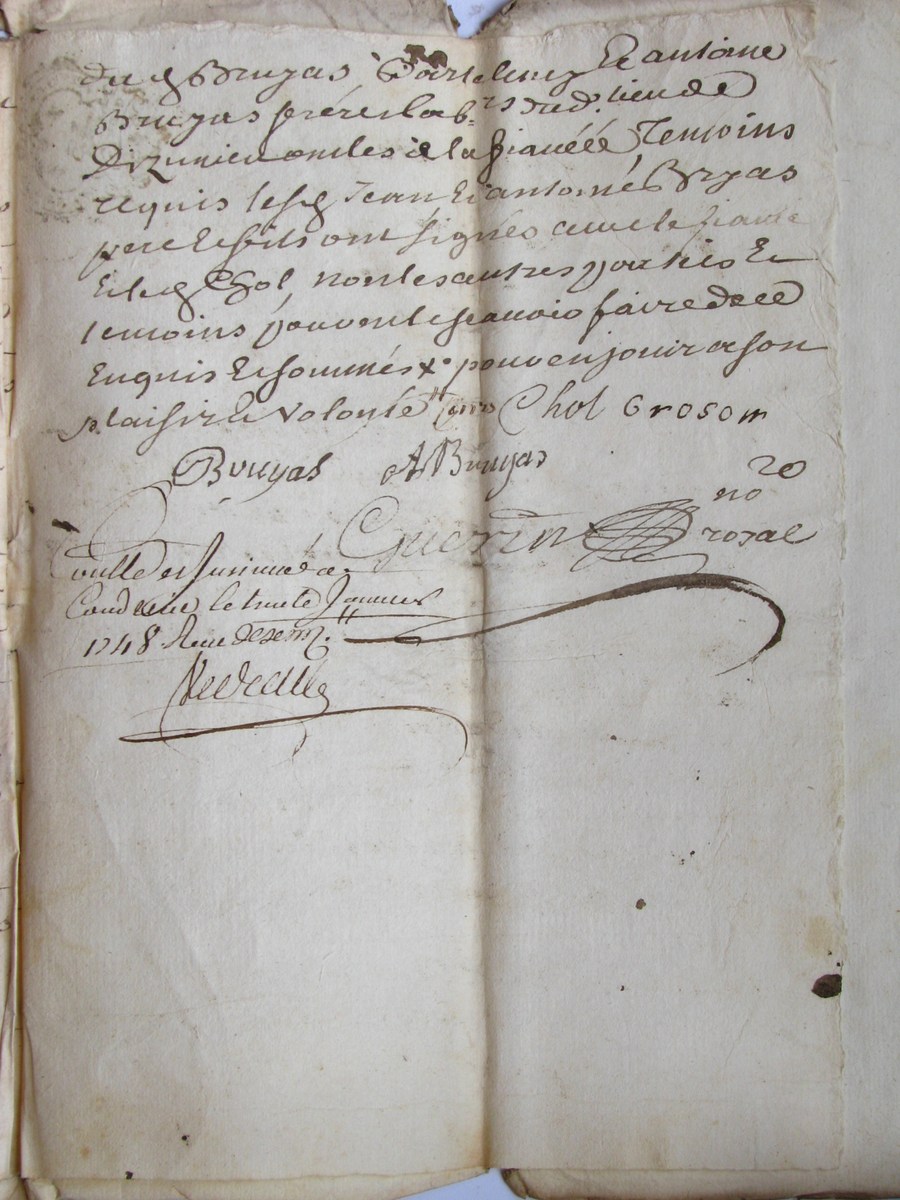 du sr Bruyas Bartelmy Et antoine
Bruyas freres lab.rs dud. lieu de
Dizimieu oncles de la fiancée Temoins
requis lesd Jean Et antoine Bruyas
pere Et fils ont signés avec le fiancé
Et le sr Chol non les autres parties Et
temoins pour ne le scavoir faire de ce
Enquis Et sommés x pour en jouir a son
plaisir Et volonté Chol Grosom
Bruyas A Bruyas
Guerin no.re royal
Conllé et Insinué a
Condrieu le trente Janvier
1748 Reçu